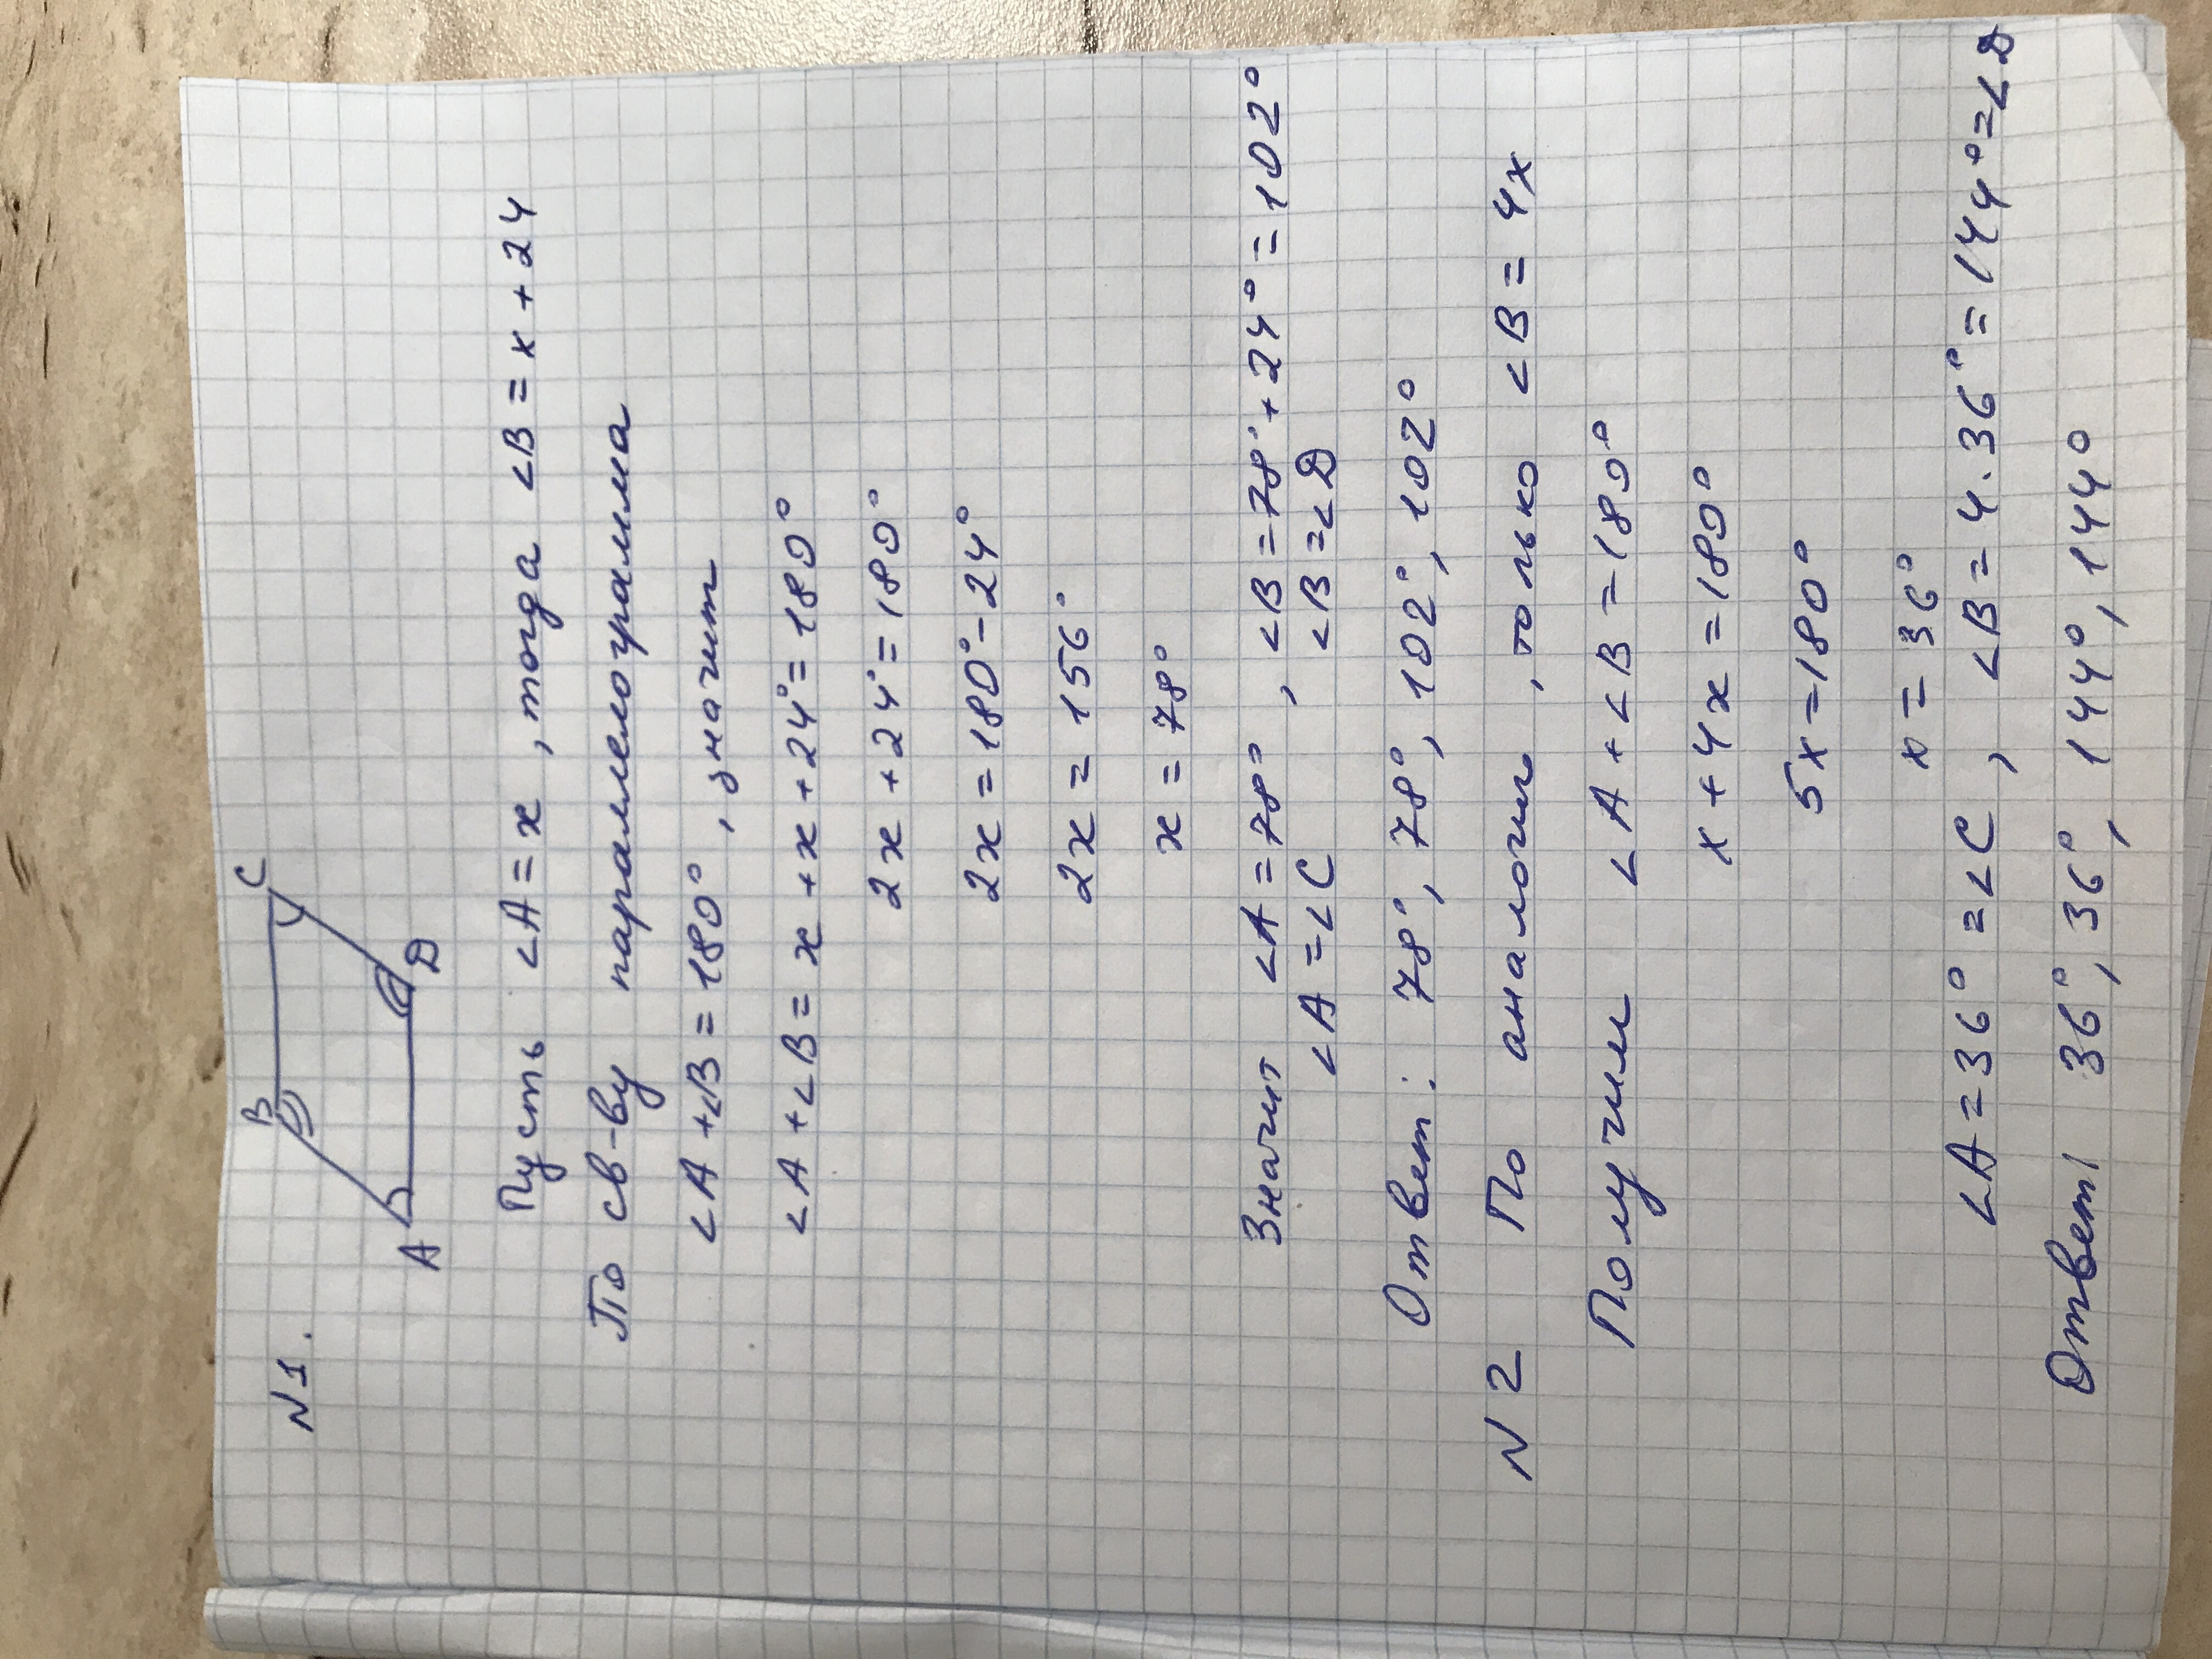 N1.
B C
A D
Пусть ∠A = x, тогда ∠B = x + 24
По св-ву параллелограмма
∠A + ∠B = 180°, значит
∠A + ∠B = x + x + 24° = 180°
2x + 24° = 180°
2x = 180° - 24°
2x = 156°
x = 78°
Значит ∠A = 78°, ∠B = 78° + 24° = 102°
∠A = ∠C ∠B = ∠D
Ответ: 78°, 78°, 102°, 102°
N 2 По аналогии, только ∠B = 4x
Получим ∠A + ∠B = 180°
x + 4x = 180°
5x = 180°
x = 36°
∠A = 36° = ∠C, ∠B = 4 · 36° = 144° = ∠D
Ответ: 36°, 36°, 144°, 144°